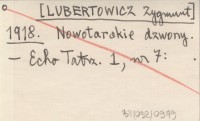 [LUBERTOWICZ Zygmunt]
1918. Nowotarskie dzwony.
— Echo Tatrz. 1, nr 7: